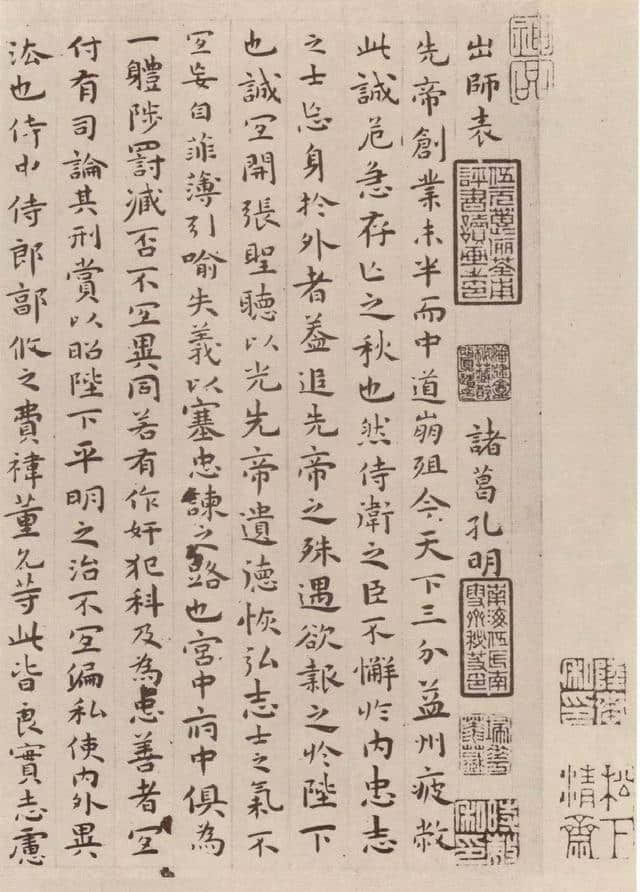 松下清齋
出師表 諸葛孔明
先帝創業未半而中道崩殂今天下三分益州疲敝
此誠危急存亡之秋也然侍衛之臣不懈於內忠志
之士忘身於外者蓋追先帝之殊遇欲報之於陛下
也誠宜開張聖聽以光先帝遺德恢弘志士之氣不
宜妄自菲薄引喻失義以塞忠諫之路也宮中府中俱為
一體陟罰臧否不宜異同若有作奸犯科及為忠善者宜
付有司論其刑賞以昭陛下平明之治不宜偏私使內外異
法也侍中侍郎郭攸之費禕董允等此皆良實志慮